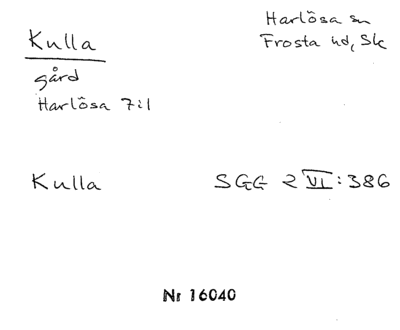 Kulla
Harlösa sn
Frosta hd, Sk
gård
Harlösa 7:1
Kulla
SGG 2 VI:386
Nr 16040